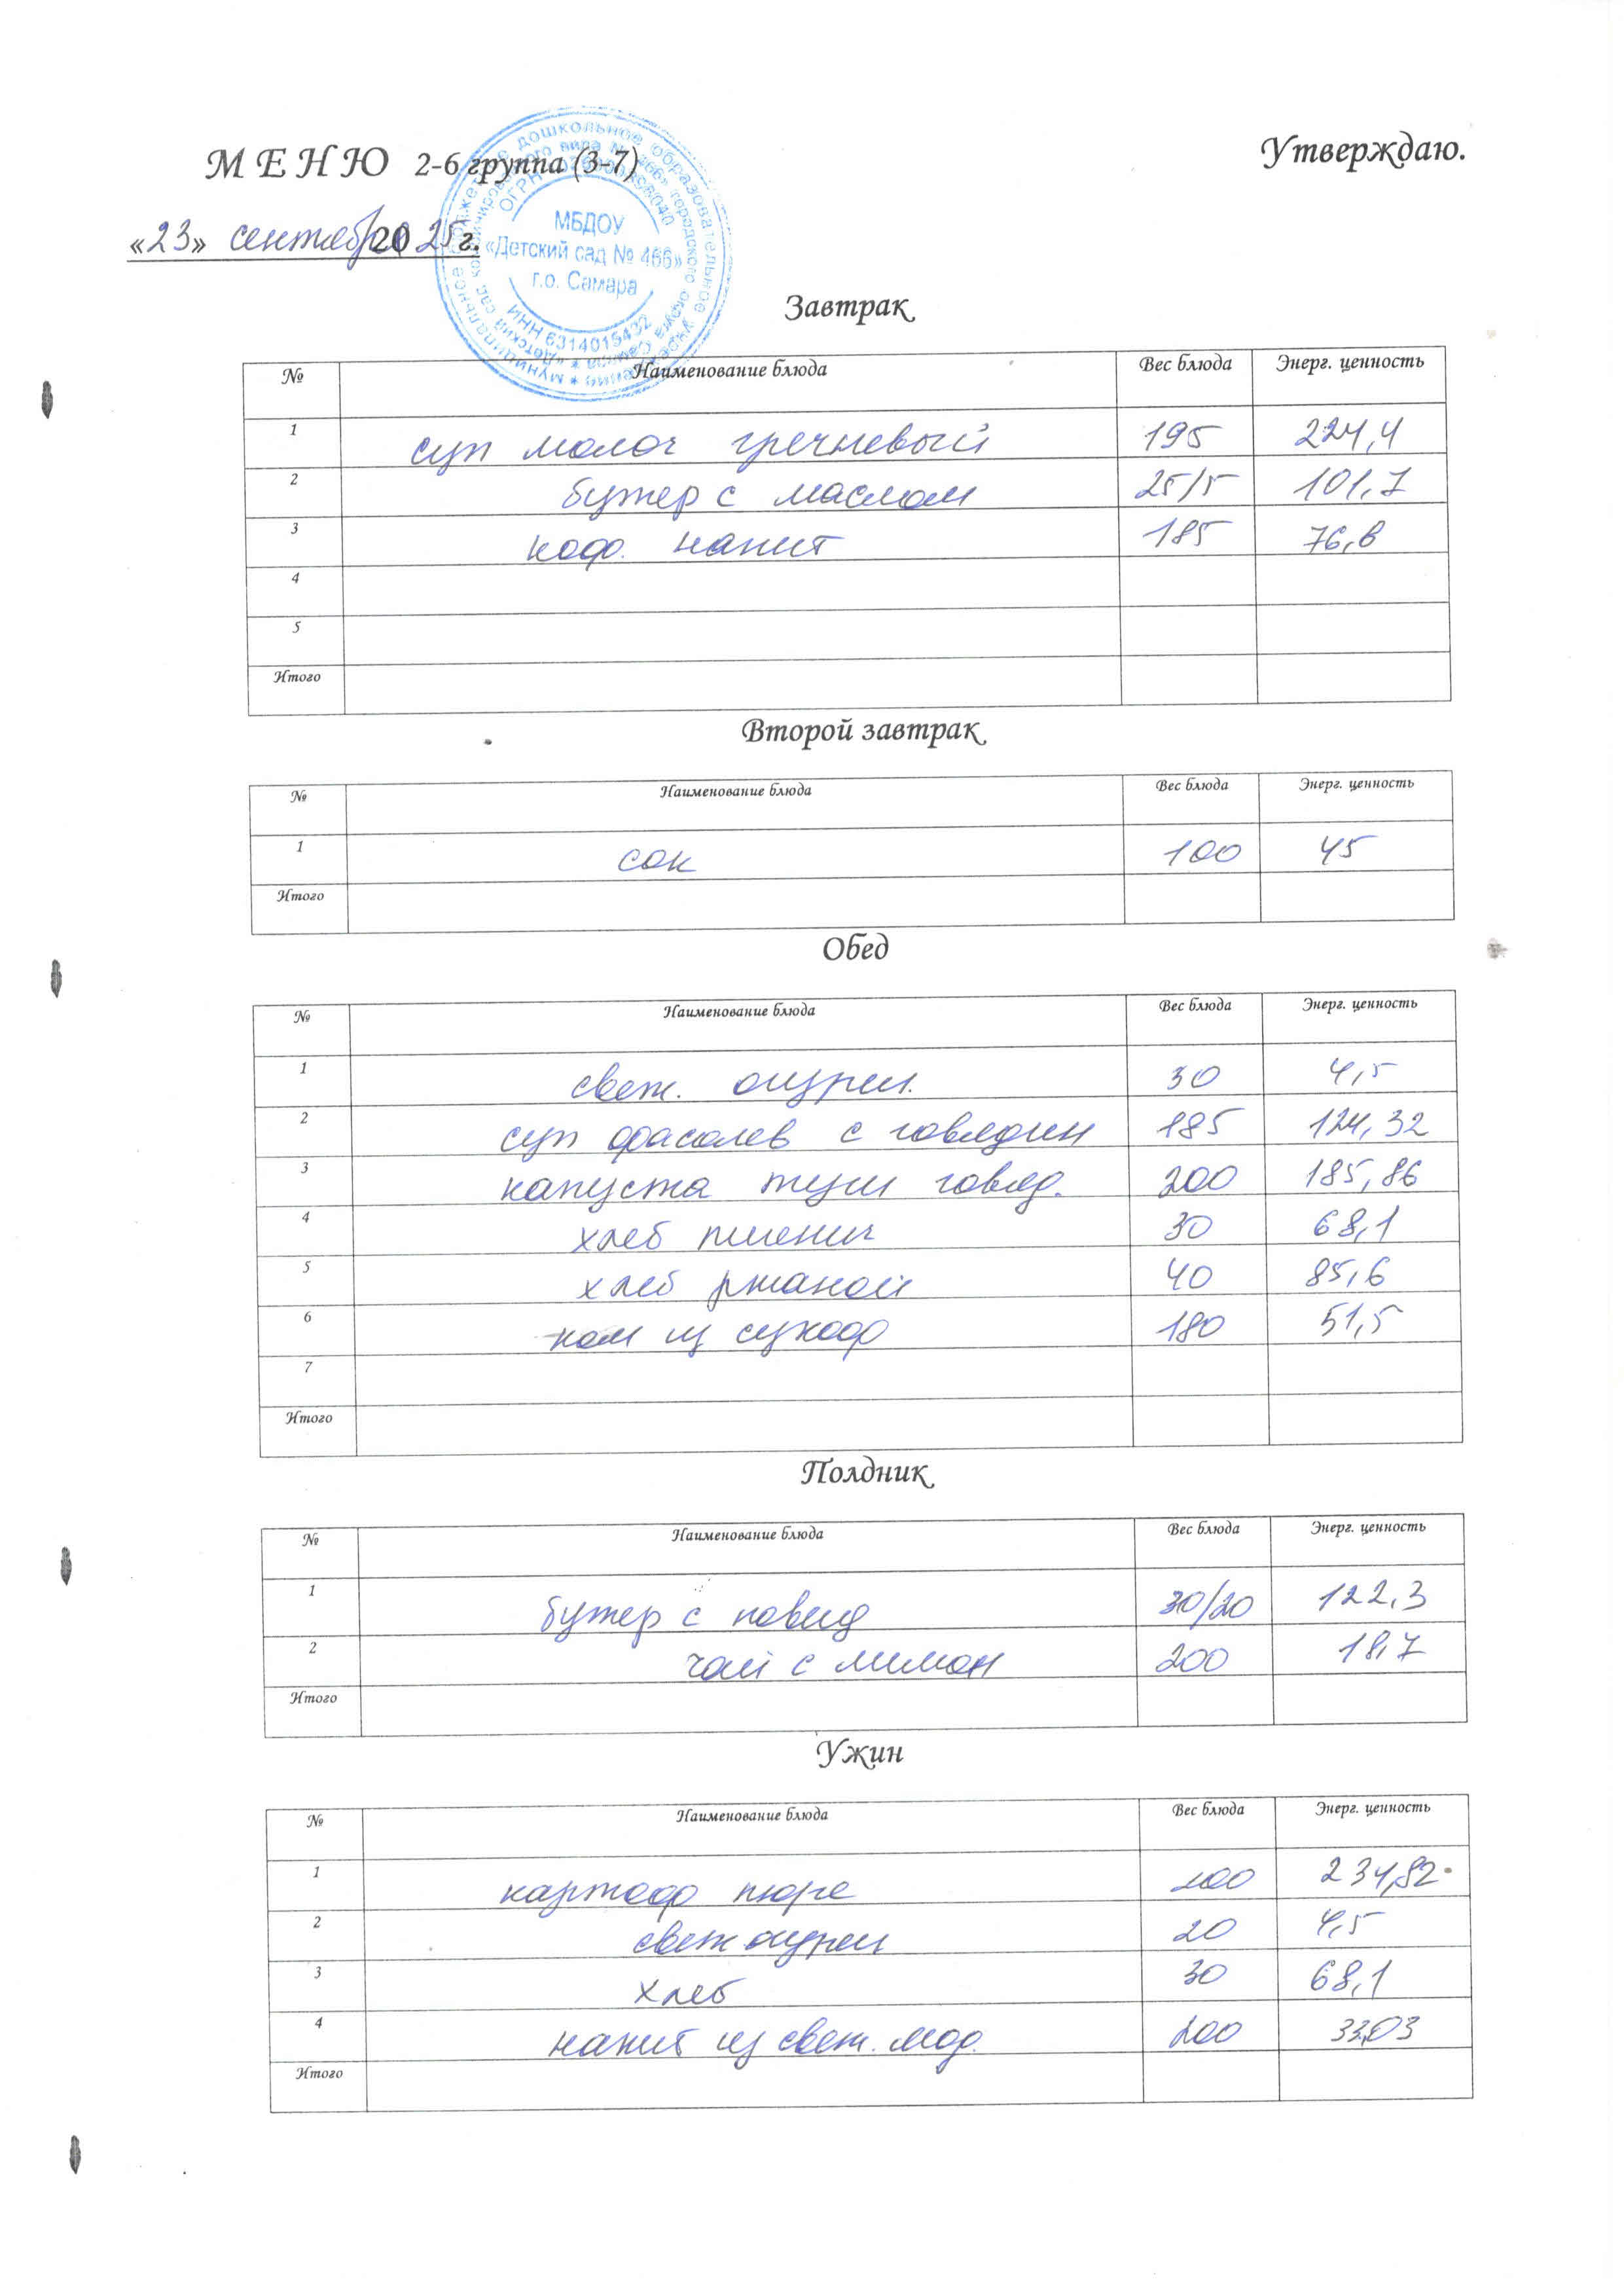 М Е Н Ю 2-6 группа (3-7)
Утверждаю.
«23» сентября 2025г.
МБДОУ
«Детский сад № 466»
г.о. Самара
ИНН 6314015432
Завтрак
№ Наименование блюда Вес блюда Энерг. ценность
1 суп молоч гречневый 195 224,4
2 бутер с маслом 25/5 101,7
3 кофо. напит 185 76,8
4
5
Итого
Второй завтрак
№ Наименование блюда Вес блюда Энерг. ценность
1 сок 100 45
Итого
Обед
№ Наименование блюда Вес блюда Энерг. ценность
1 свеж. огурец. 30 4,5
2 суп фасолев с говядин 185 124,32
3 капуста туш говяд. 200 185,86
4 хлеб пшенич 30 68,1
5 хлеб ржаной 40 85,6
6 ком из сухоф 180 51,5
7
Итого
Полдник
№ Наименование блюда Вес блюда Энерг. ценность
1 бутер с повид 30/20 122,3
2 чай с лимон 200 18,7
Итого
Ужин
№ Наименование блюда Вес блюда Энерг. ценность
1 картоф пюре 200 234,82
2 свеж огурец 20 4,5
3 хлеб 30 68,1
4 напит из свеж. мор. 200 33,03
Итого